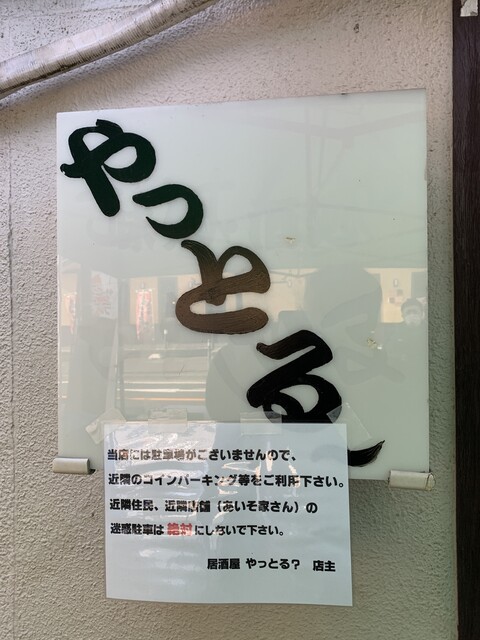 やっとる
当店には駐車場がございませんので、
近隣のコインパーキング等をご利用下さい。
近隣住民、近隣店舗（あいそ家さん）の
迷惑駐車は絶対にしないで下さい。
居酒屋 やっとる？ 店主